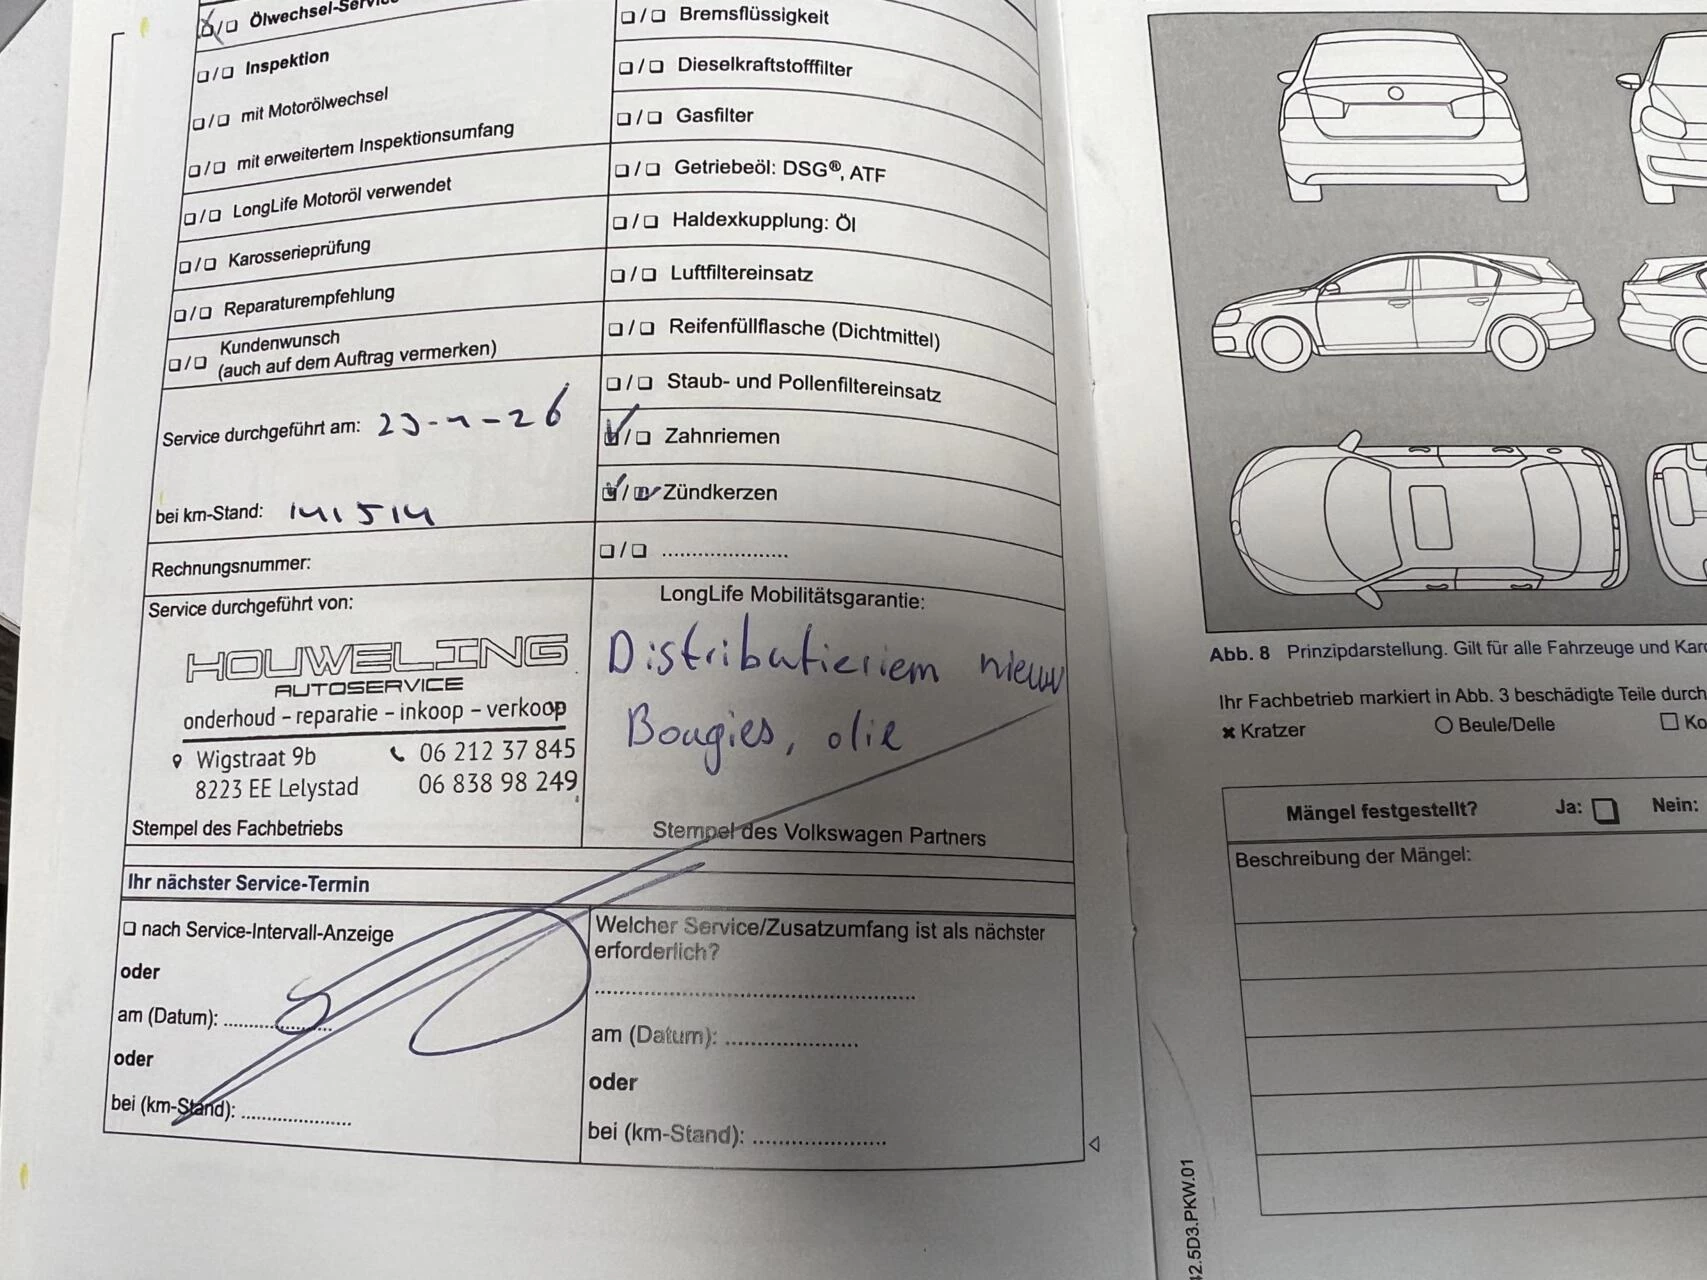 Ölwechsel-Service
Inspektion
mit Motorölwechsel
mit erweitertem Inspektionsumfang
LongLife Motoröl verwendet
Karosserieprüfung
Reparaturempfehlung
Kundenwunsch
(auch auf dem Auftrag vermerken)
Service durchgeführt am: 23-1-26
bei km-Stand: 141514
Rechnungsnummer:
Service durchgeführt von:
HOUWELING
AUTOSERVICE
onderhoud – reparatie – inkoop – verkoop
Wigstraat 9b 06 212 37 845
8223 EE Lelystad 06 838 98 249
Stempel des Fachbetriebs
Bremsflüssigkeit
Dieselkraftstofffilter
Gasfilter
Getriebeöl: DSG®, ATF
Haldexkupplung: Öl
Luftfiltereinsatz
Reifenfüllflasche (Dichtmittel)
Staub- und Pollenfiltereinsatz
Zahnriemen
Zündkerzen
LongLife Mobilitätsgarantie:
Distributieriem nieuw
Bougies, olie
Stempel des Volkswagen Partners
Ihr nächster Service-Termin
nach Service-Intervall-Anzeige
oder
am (Datum):
oder
bei (km-Stand):
Welcher Service/Zusatzumfang ist als nächster
erforderlich?
am (Datum):
oder
bei (km-Stand):
Abb. 8 Prinzipdarstellung. Gilt für alle Fahrzeuge und Karo
Ihr Fachbetrieb markiert in Abb. 3 beschädigte Teile durch
Kratzer Beule/Delle Ko
Mängel festgestellt? Ja: Nein:
Beschreibung der Mängel:
42.5D3.PKW.01